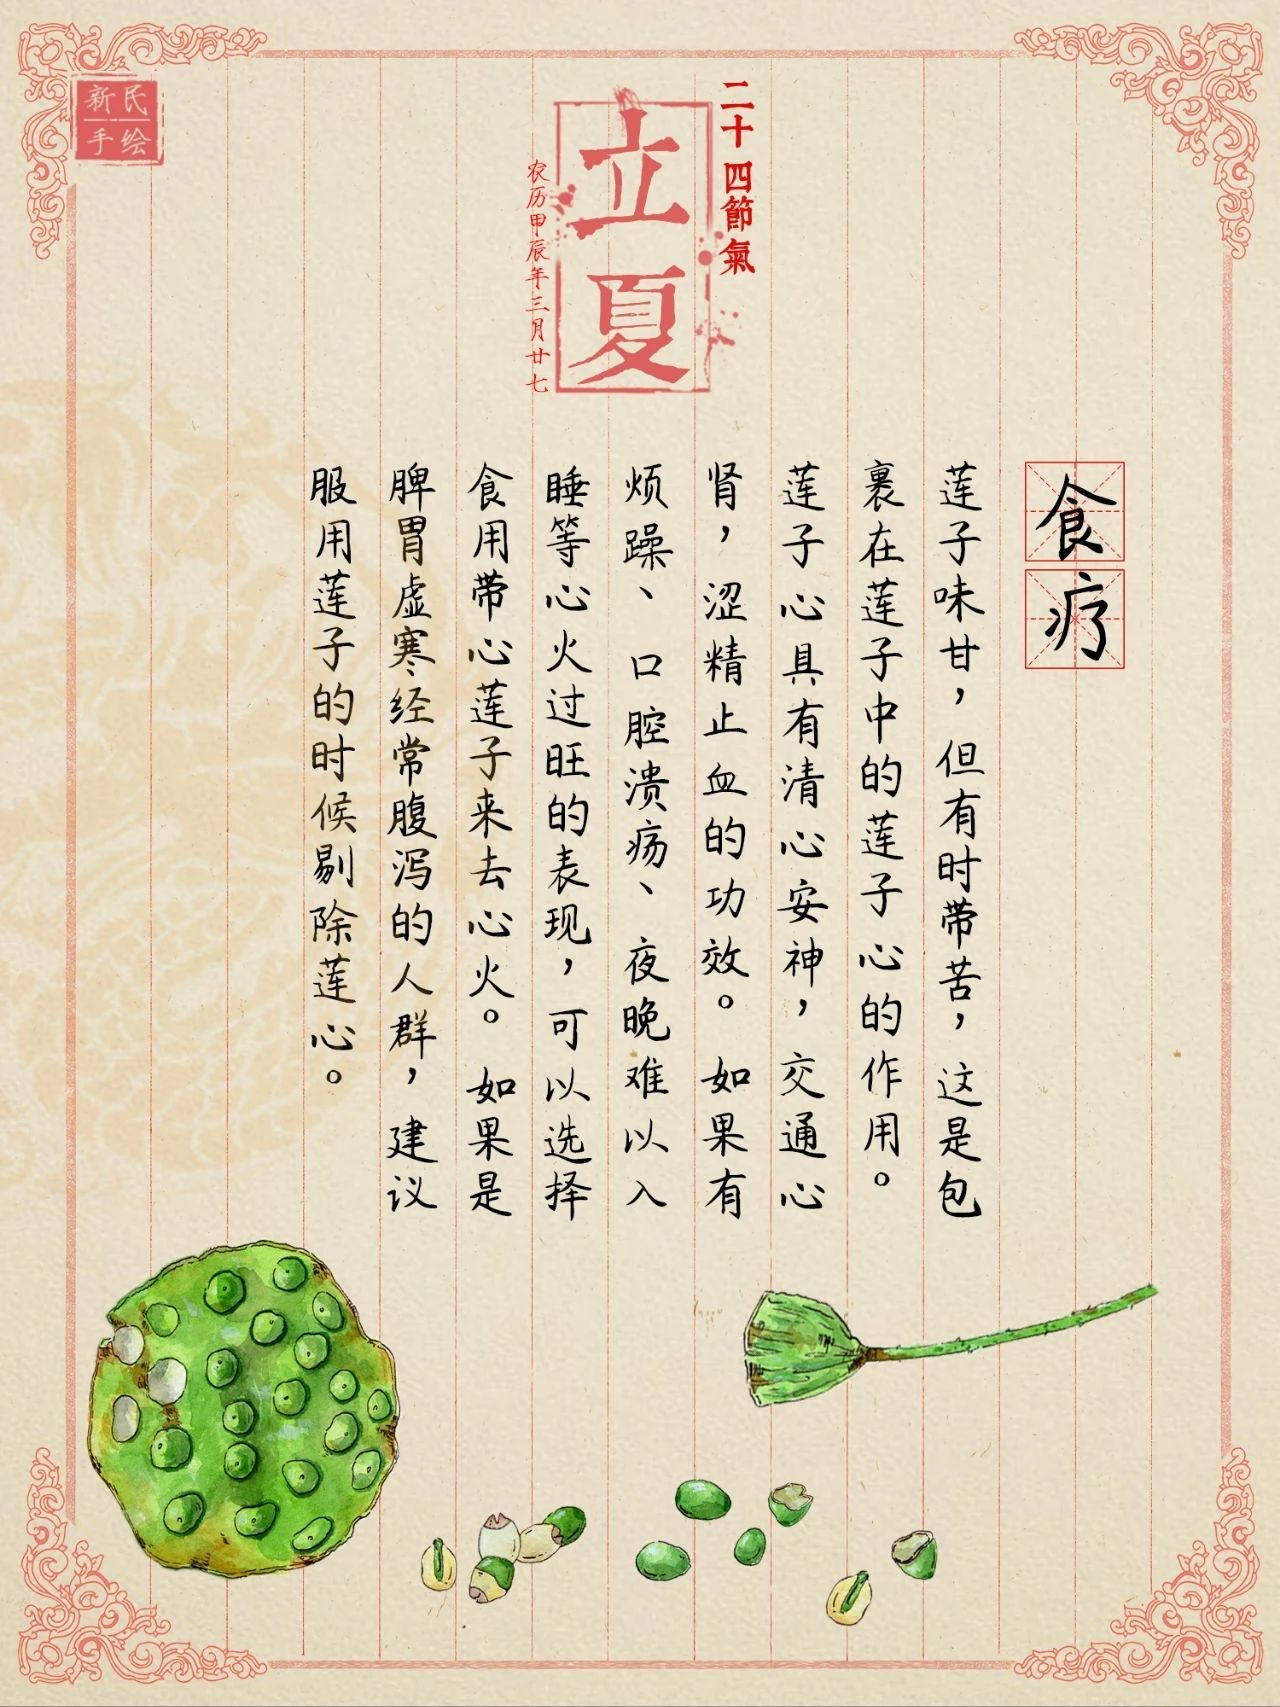 新民
手绘
二十四節氣
立夏
农历甲辰年三月廿七
食疗
莲子味甘，但有时带苦，这是包
裹在莲子中的莲子心的作用。
莲子心具有清心安神，交通心
肾，涩精止血的功效。如果有
烦躁、口腔溃疡、夜晚难以入
睡等心火过旺的表现，可以选择
食用带心莲子来去心火。如果是
脾胃虚寒经常腹泻的人群，建议
服用莲子的时候剔除莲心。